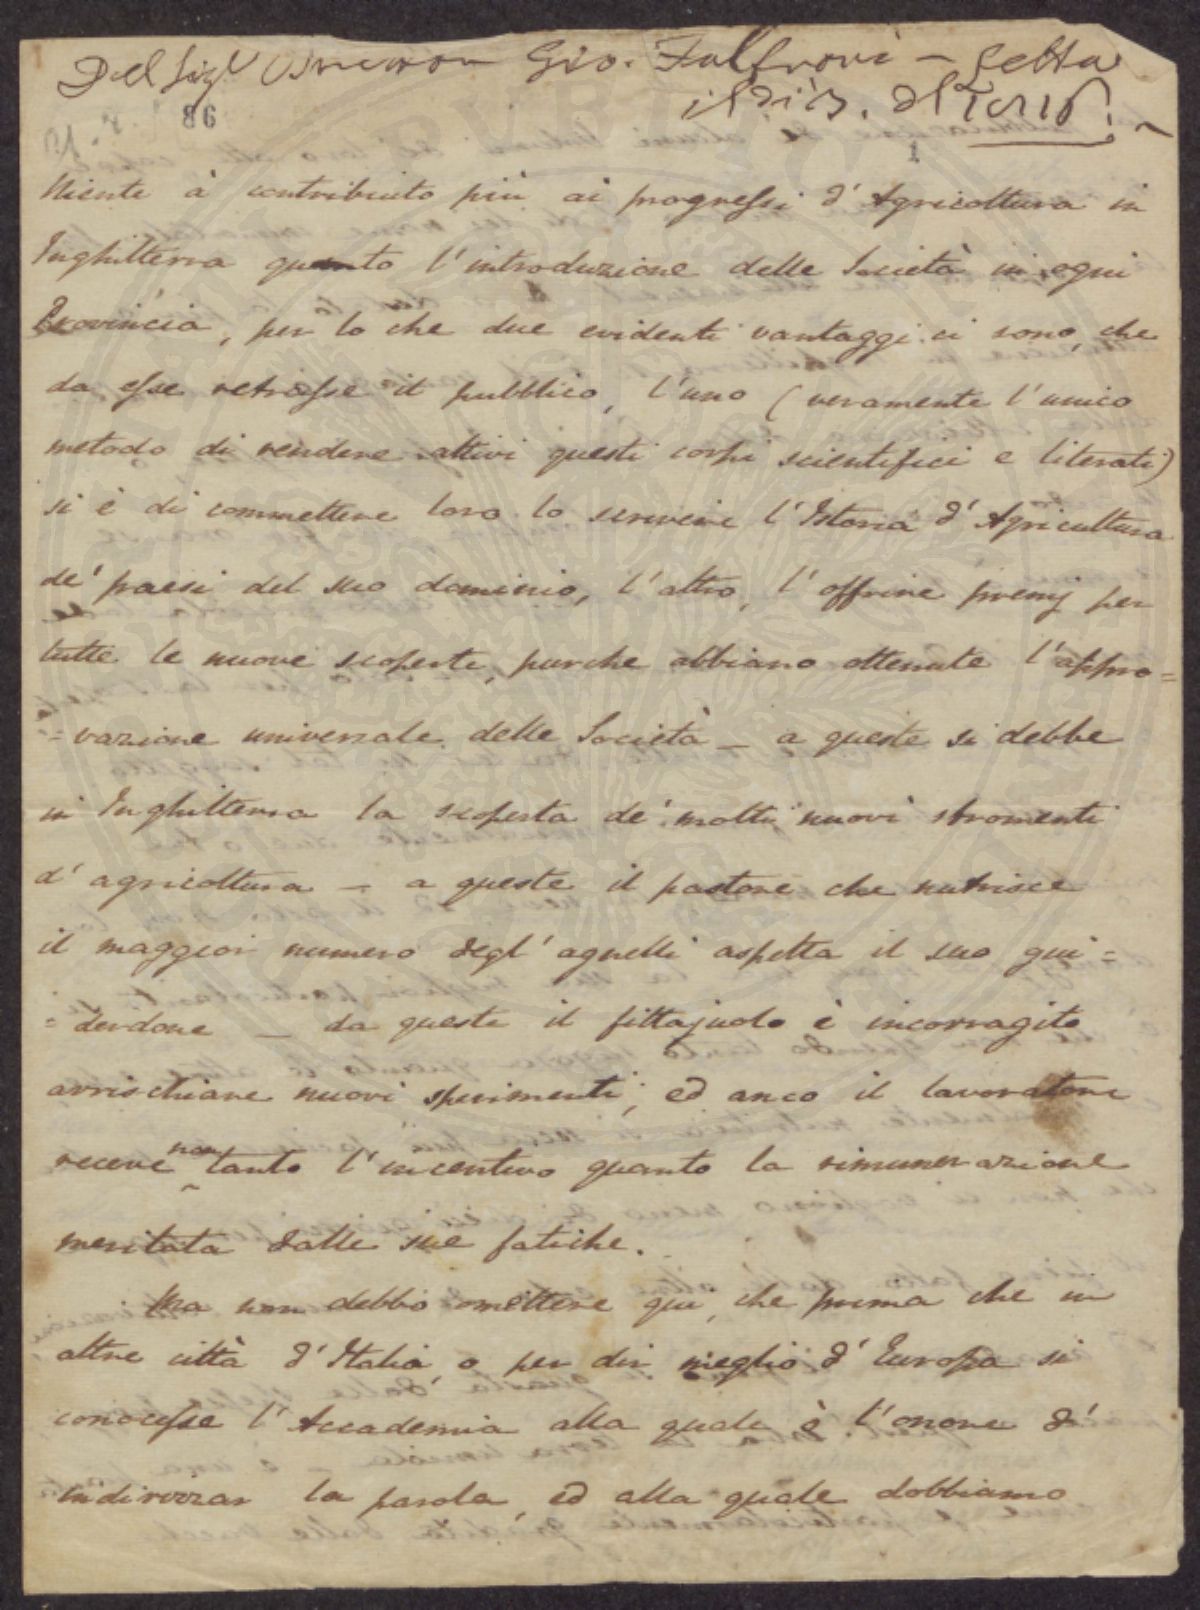 Del Sigr Gio. Fabbroni – Letta
il dì 3. del 1818. –
86
1
Niente à contribuito più ai progressi d'Agricoltura in
Inghilterra quanto l'introduzione delle Società in ogni
Provincia, per lo che due evidenti vantaggi ci sono, che
da esse retrasse il pubblico, l'uno (veramente l'unico
metodo di rendere attivi questi corpi scientifici e literati)
si è di commettere loro lo scrivere l'Istoria d'Agricultura
de' paesi del suo dominio, l'altro, l'offrire premj per
tutte le nuove scoperte, purche abbiano ottenute l'appro=
=vazione universale delle Società – a queste si debbe
in Inghilterra la scoperta de' molti nuovi stromenti
d'agricoltura – a queste il pastore che nutrisce
il maggior numero degl'agnelli aspetta il suo gui=
=derdone – da queste il fittajuolo è incorragito
arrischiare nuovi sperimenti; ed anco il lavoratore
receve non tanto l'incentivo quanto la rimunerazione
meritata dalle sue fatiche.
Ma non debbo omettere qui, che prima che in
altre città d'Italia, o per dir meglio d'Europa si
conocesse l'Accademia alla quale ò l'onore d'
indirizzar la parola, ed alla quale dobbiamo